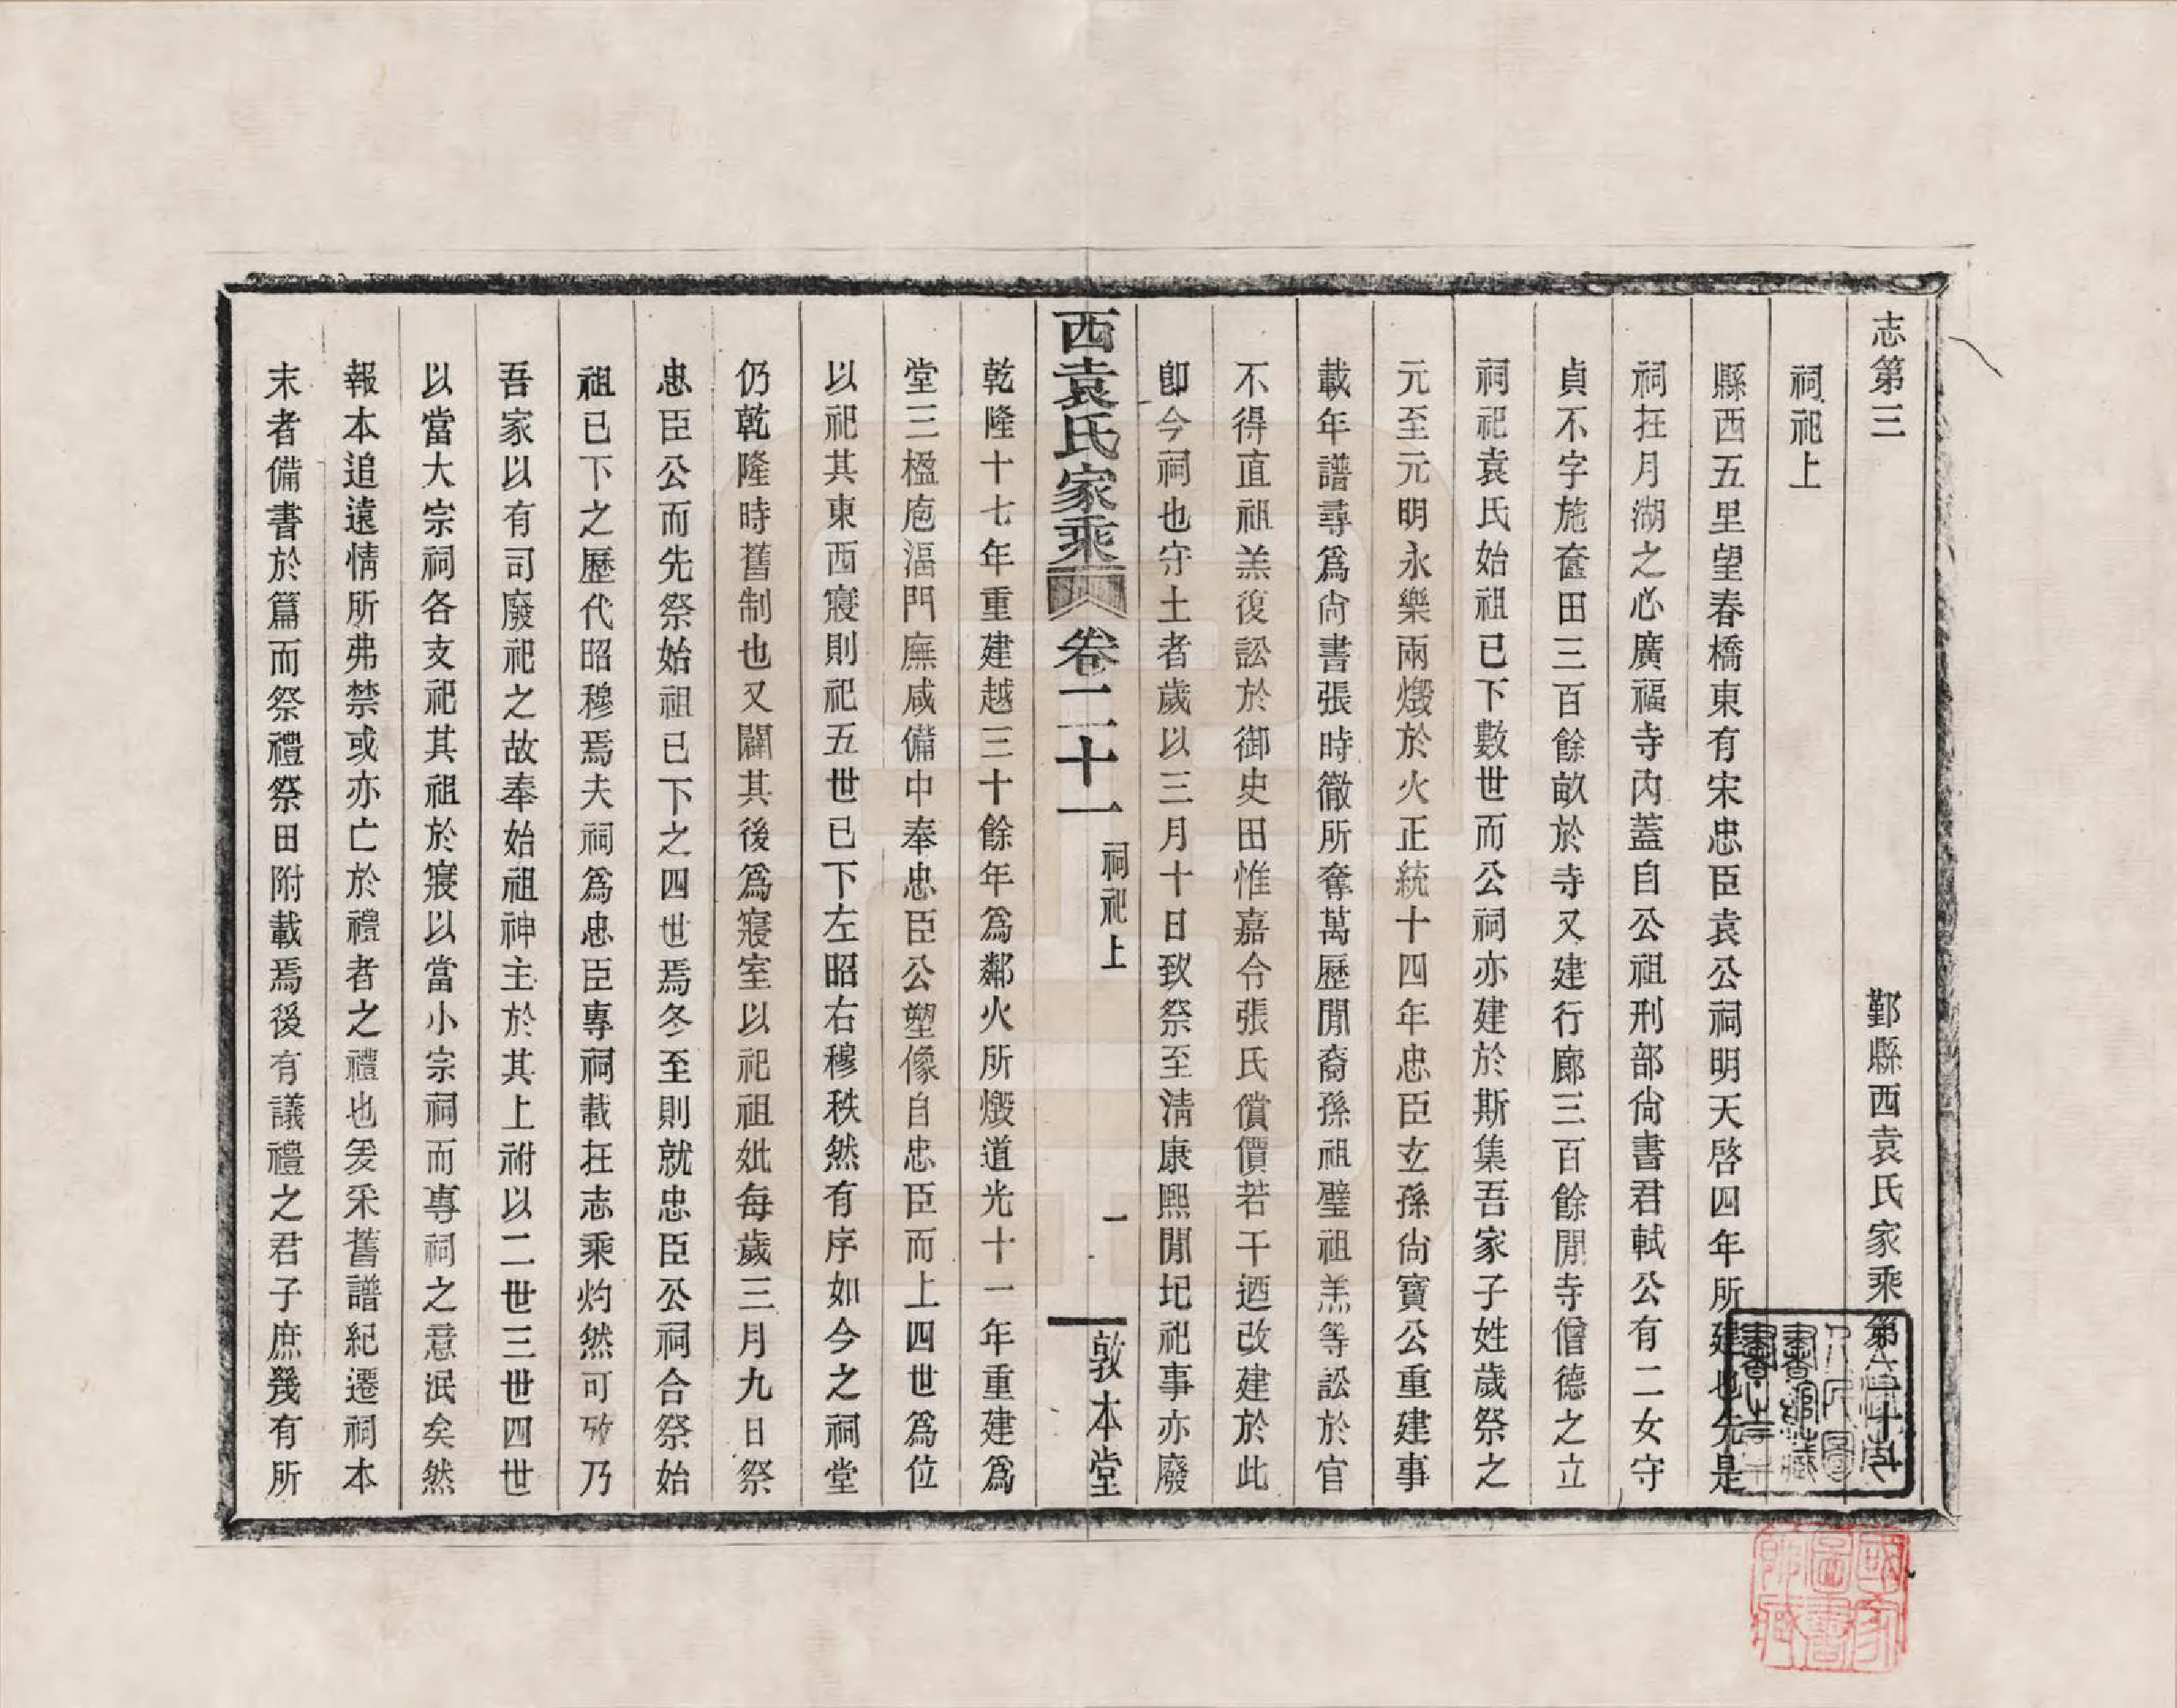 志第三 鄞縣西袁氏家乘第二十一
祠祀上
縣西五里望春橋東有宋忠臣袁公祠明天啓四年所建也先是
祠在月湖之心廣福寺內蓋自公祖刑部尙書君軾公有二女守
貞不字施奩田三百餘畝於寺又建行廊三百餘閒寺僧德之立
祠祀袁氏始祖已下數世而公祠亦建於斯集吾家子姓歲祭之
元至元明永樂兩燬於火正統十四年忠臣玄孫尙寶公重建事
載年譜尋爲尙書張時徹所奪萬歷閒裔孫祖璧祖羔等訟於官
不得直祖羔復訟於御史田惟嘉令張氏償價若干迺改建於此
卽今祠也守土者歲以三月十日致祭至淸康熙閒圮祀事亦廢
西袁氏家乘 卷二十一 祠祀上 一 敦本堂
乾隆十七年重建越三十餘年爲鄰火所燬道光十一年重建爲
堂三楹庖湢門廡咸備中奉忠臣公塑像自忠臣而上四世爲位
以祀其東西寢則祀五世已下左昭右穆秩然有序如今之祠堂
仍乾隆時舊制也又闢其後爲寢室以祀祖妣每歲三月九日祭
忠臣公而先祭始祖已下之四世焉冬至則就忠臣公祠合祭始
祖已下之歷代昭穆焉夫祠爲忠臣專祠載在志乘灼然可攷乃
吾家以有司廢祀之故奉始祖神主於其上祔以二世三世四世
以當大宗祠各支祀其祖於寢以當小宗祠而專祠之意泯矣然
報本追遠情所弗禁或亦亡於禮者之禮也爰采舊譜紀遷祠本
末者備書於篇而祭禮祭田附載焉後有議禮之君子庶幾有所
國家
圖書
館藏